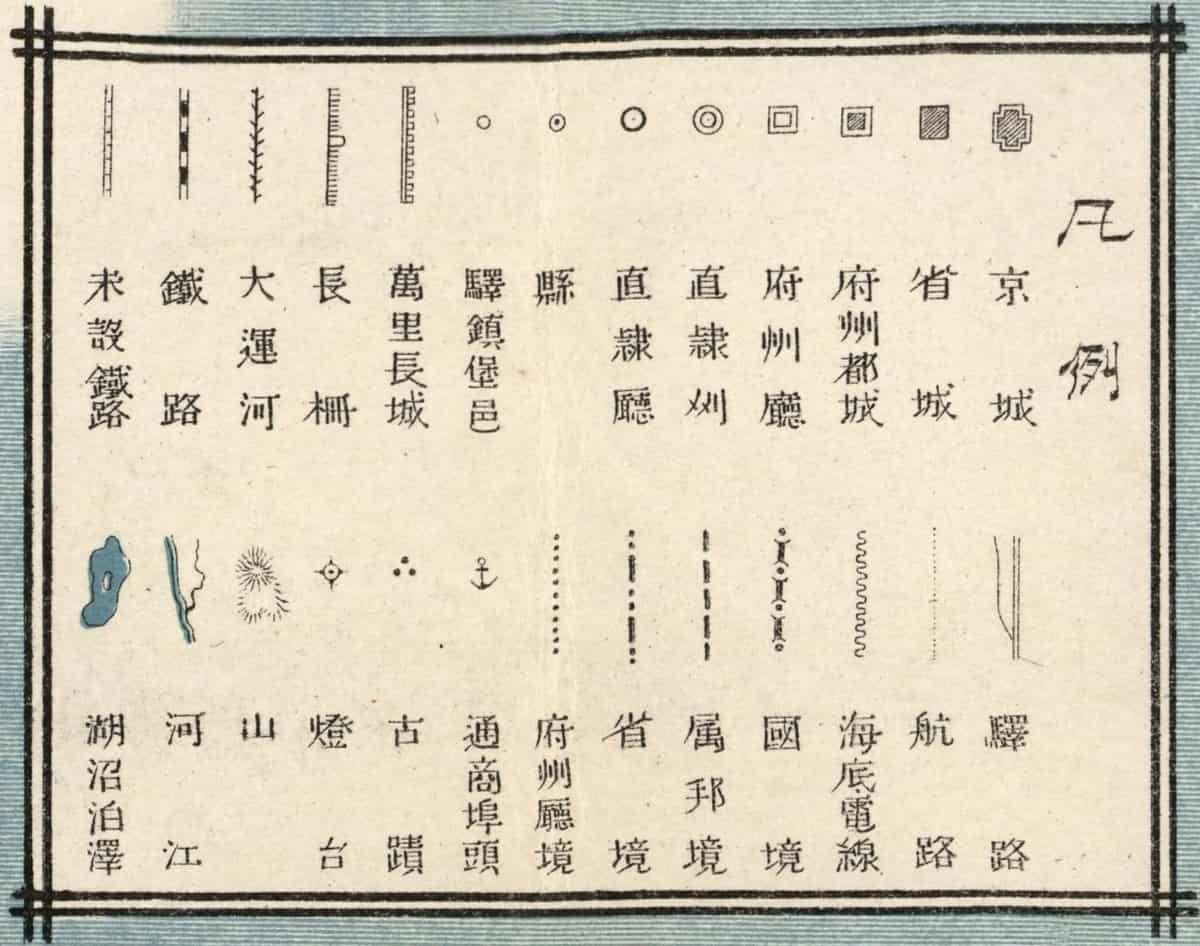 凡例
京城
省城
府州都城
府州廳
直隷州
直隷廳
縣
驛鎮堡邑
萬里長城
長柵
大運河
鐵路
未設鐵路
驛路
航路
海底電線
國境
属邦境
省境
府州廳境
通商埠頭
古蹟
燈台
山
河江
湖沼泊澤